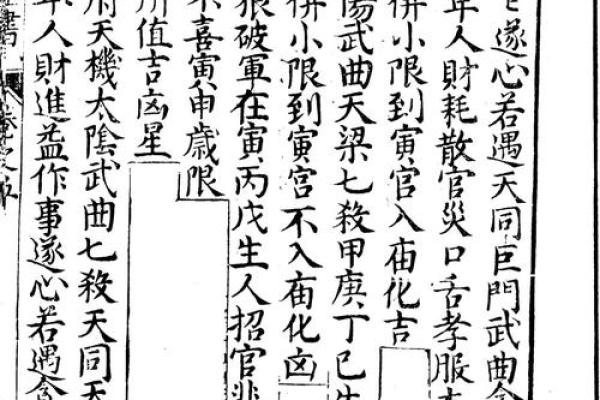 遂心若遇天同巨門武曲
年人財耗散官災口舌孝服
併小限到寅宮入庙化吉
陽武曲天梁七殺甲庚丁巳生
併小限到寅宮不入庙化凶
狼破軍在寅丙戊生人招官非
不喜寅申歲限
所值吉凶星
府天機太陰武曲七殺天同天
年人財進益作事遂心若遇